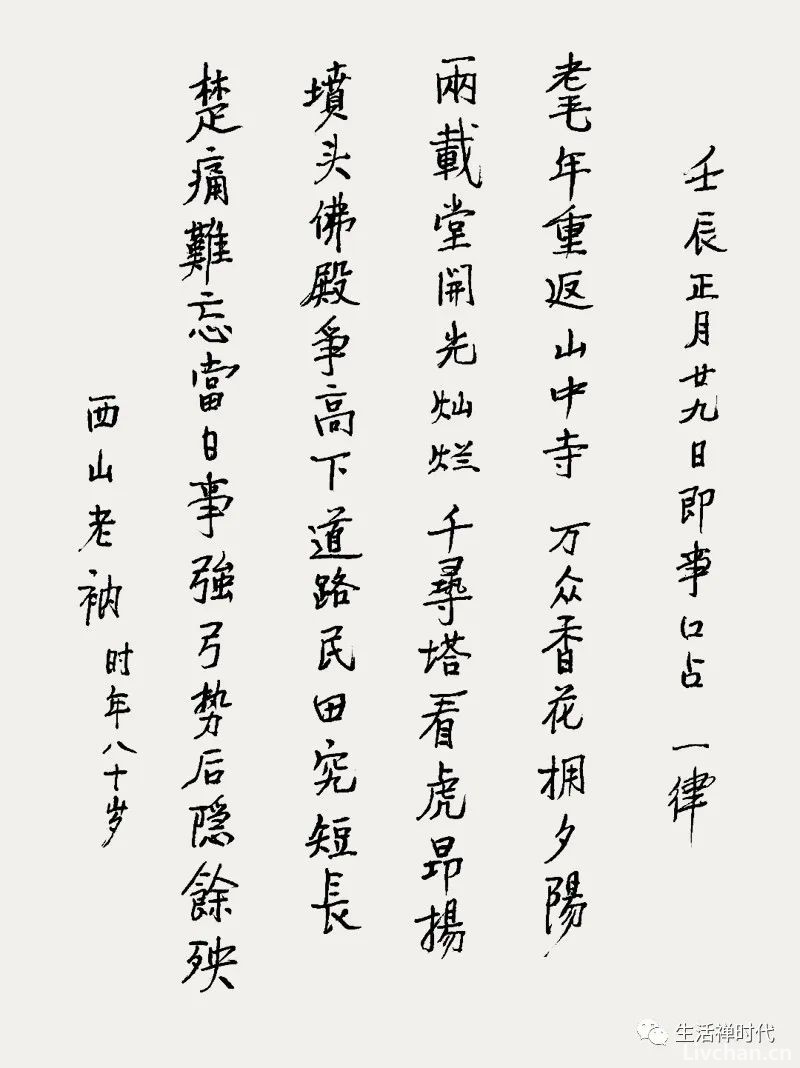 壬辰正月廿九日即事口占 一律
耄年重返山中寺 万众香花拥夕陽
兩載堂開光灿烂 千尋塔看虎昂揚
墳头佛殿爭高下 道路民田究短長
楚痛難忘當日事 強弓势后隐餘殃
西山老衲 时年八十岁
生活禅时代
Livchan.cn